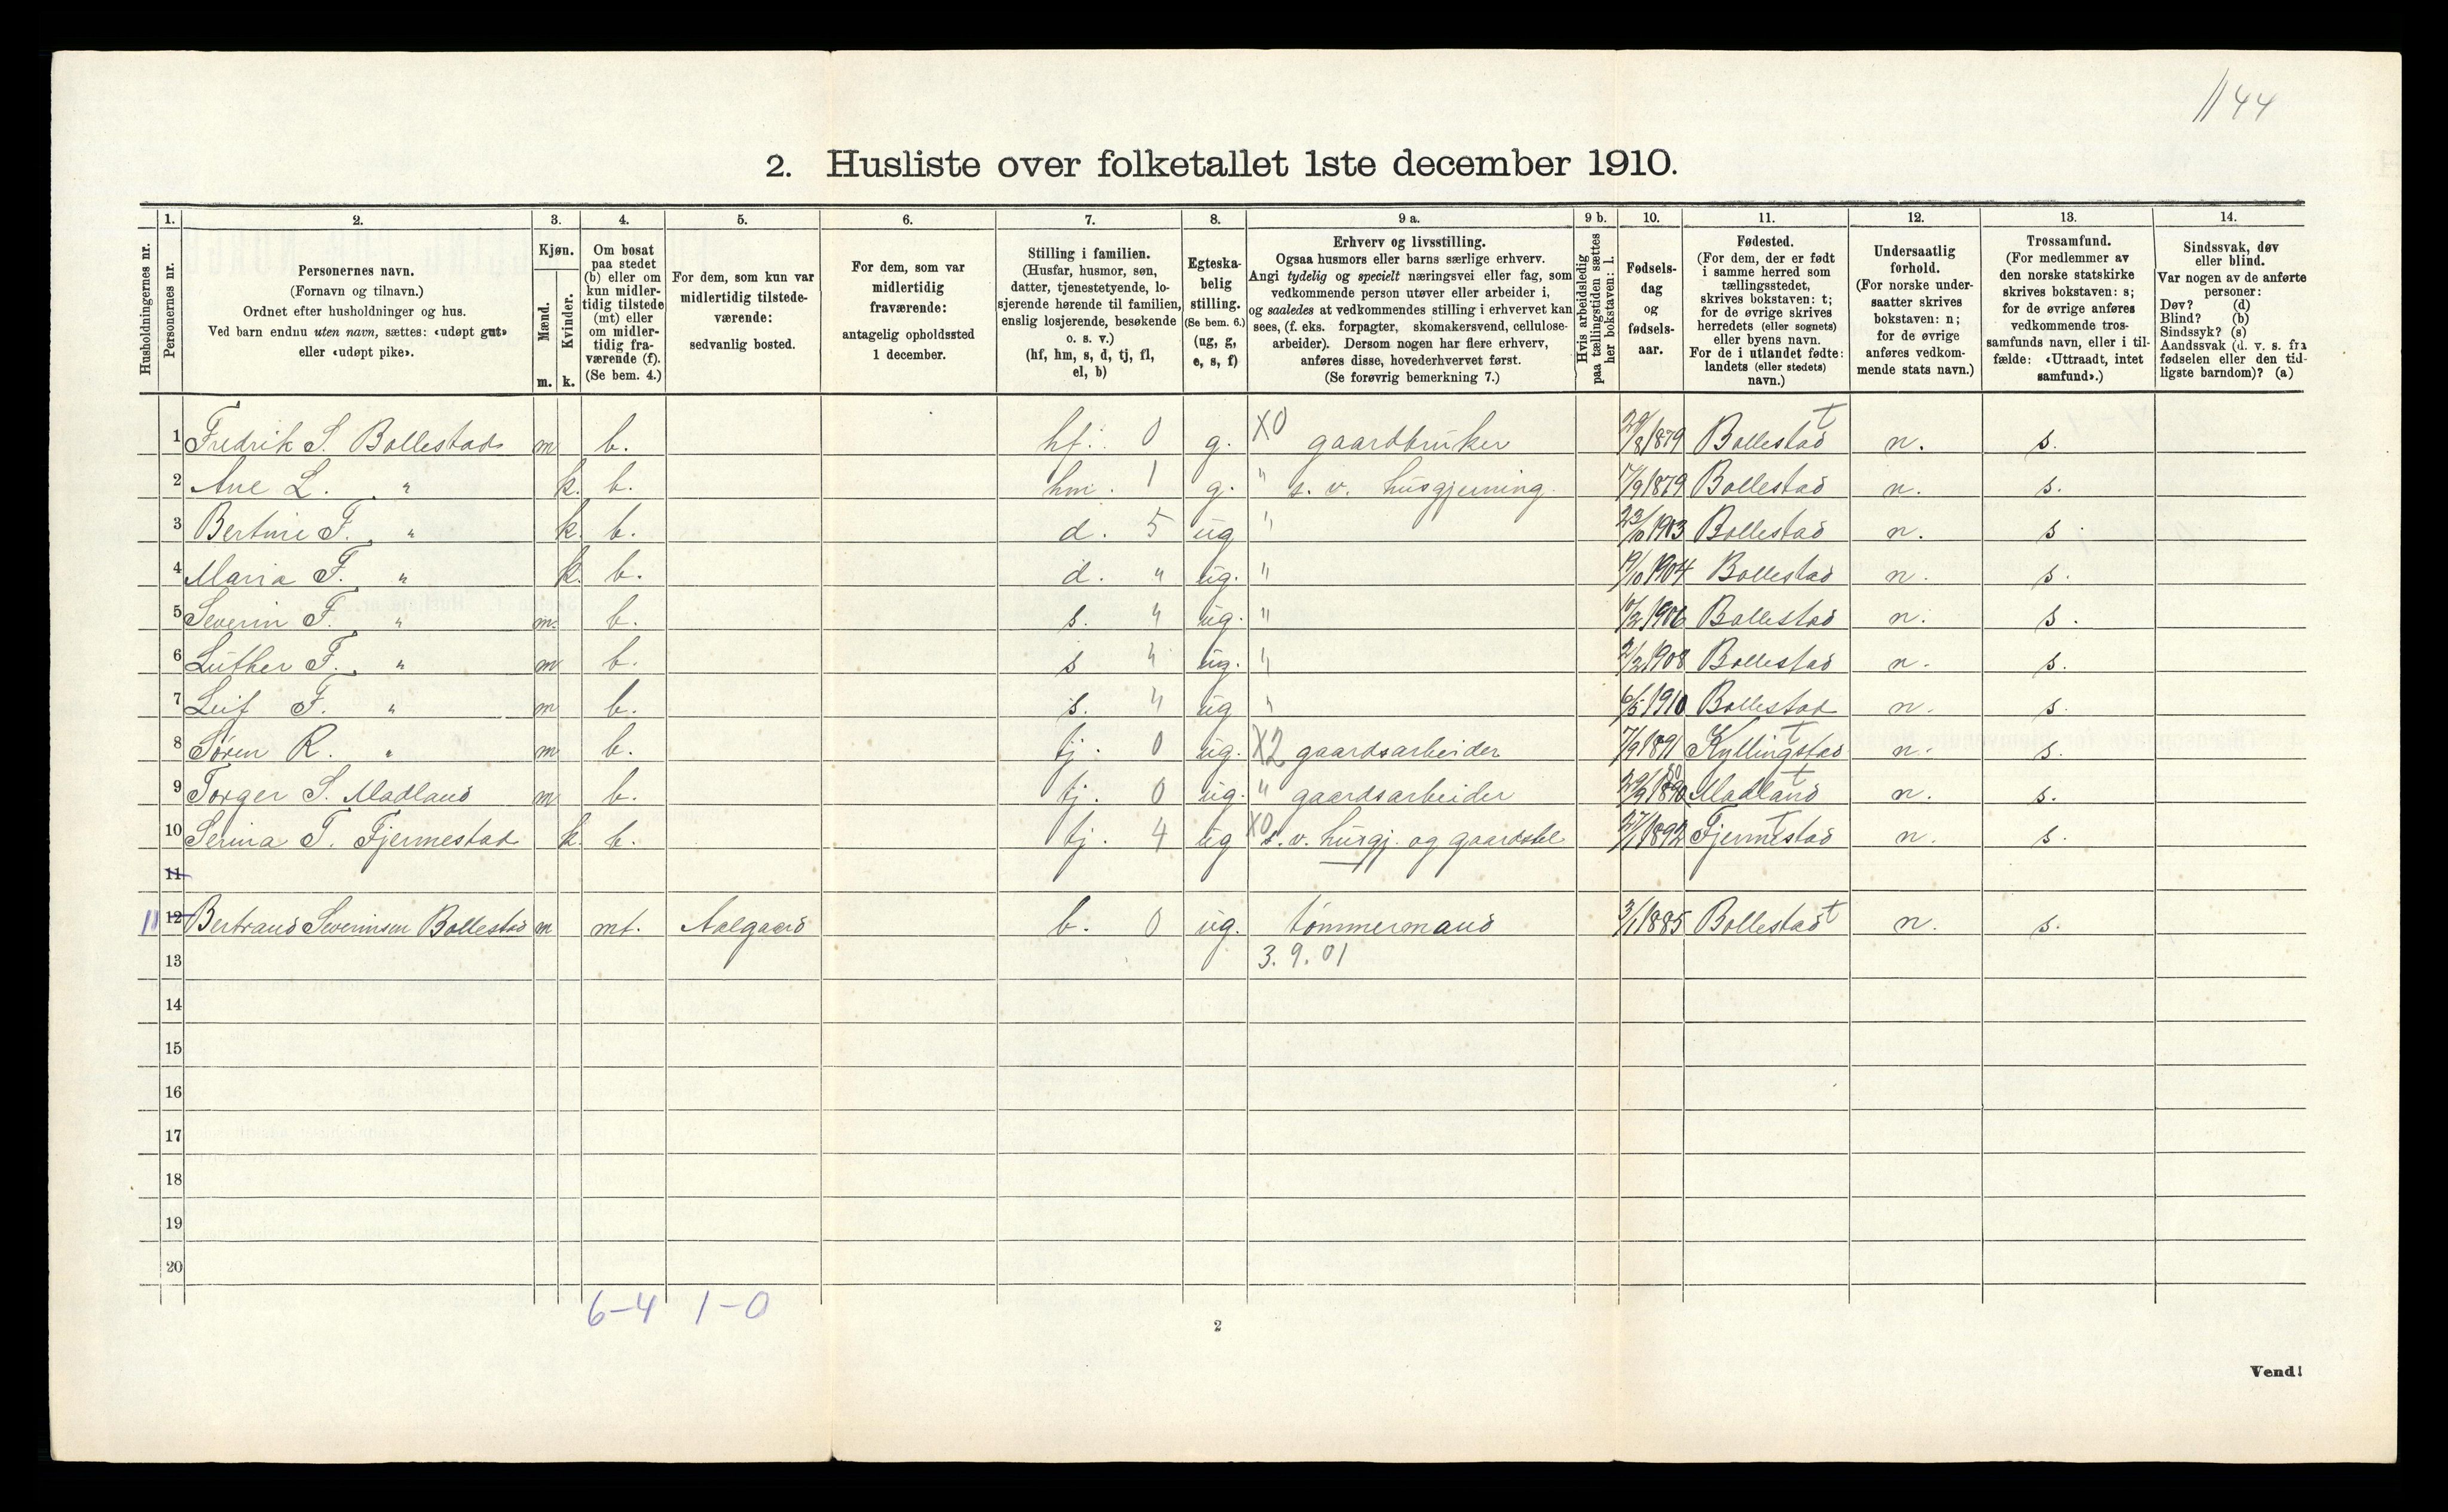 1144
2. Husliste over folketallet 1ste december 1910.
1. 2. 3. 4. 5. 6. 7. 8. 9 a. 9 b. 10. 11. 12. 13. 14.
Husholdningernes nr.
Personernes nr.
Personernes navn.
(Fornavn og tilnavn.)
Ordnet efter husholdninger og hus.
Ved barn endnu uten navn, sættes: «udøpt gut»
eller «udøpt pike».
Kjøn.
Mænd.
Kvinder.
m. k.
Om bosat
paa stedet
(b) eller om
kun midler-
tidig tilstede
(mt) eller
om midler-
tidig fra-
værende (f).
(Se bem. 4.)
For dem, som kun var
midlertidig tilstede-
værende:
sedvanlig bosted.
For dem, som var
midlertidig
fraværende:
antagelig opholdssted
1 december.
Stilling i familien.
(Husfar, husmor, søn,
datter, tjenestetyende, lo-
sjerende hørende til familien,
enslig losjerende, besøkende
o. s. v.)
(hf, hm, s, d, tj, fl,
el, b)
Egteska-
belig
stilling.
(Se bem. 6.)
(ug, g,
e, s, f)
Erhverv og livsstilling.
Ogsaa husmors eller barns særlige erhverv.
Angi tydelig og specielt næringsvei eller fag, som
vedkommende person utøver eller arbeider i,
og saaledes at vedkommendes stilling i erhvervet kan
sees, (f. eks. forpagter, skomakersvend, cellulose-
arbeider). Dersom nogen har flere erhverv,
anføres disse, hovederhvervet først.
(Se forøvrig bemerkning 7.)
Hvis arbeidsledig
paa tællingstiden sættes
her bokstaven: l.
Fødsels-
dag
og
fødsels-
aar.
Fødested.
(For dem, der er født
i samme herred som
tællingsstedet,
skrives bokstaven: t;
for de øvrige skrives
herredets (eller sognets)
eller byens navn.
For de i utlandet fødte:
landets (eller stedets)
navn.)
Undersaatlig
forhold.
(For norske under-
saatter skrives
bokstaven: n;
for de øvrige
anføres vedkom-
mende stats navn.)
Trossamfund.
(For medlemmer av
den norske statskirke
skrives bokstaven: s;
for de øvrige anføres
vedkommende tros-
samfunds navn, eller i til-
fælde: «Uttraadt, intet
samfund».)
Sindssvak, døv
eller blind.
Var nogen av de anførte
personer:
Døv? (d)
Blind? (b)
Sindssyk? (s)
Aandssvak (d. v. s. fra
fødselen eller den tid-
ligste barndom)? (a)
1 Fredrik S. Bollestad m b. hf. 0 g. X0 gaardbruker 8 1879 Bollestad t n. s.
2 Ane L. " k. b. hm. 1 g. " s. v. husgjerning. 17/9 1879 Bollestad n. s.
3 Bertine F. " k. b. d. 5 ug " 23/10 1903 Bollestad n. s
4 Maria F. " k. b. d. " ug. " 19/10 1904 Bollestad n. s.
5 Severin F. " m. b. s. " ug. " 10/2 1906 Bollestad n. s.
6 Luther F. " m b. s " ug. " 2/2 1908 Bollestad n. s.
7 Leif F. " m b. s. " ug " 6/5 1910 Bollestad n. s.
8 Søren R. " m b. tj. 0 ug. X2 gaardsarbeider 7/9 1891 Kyllingstad t n. s.
9 Torger S. Madland m b. tj. 0 ug. " gaardsarbeider 29/9 1890 Madland t n. s.
10 Serina T. Fjermestad k. b. tj. 4 ug X0 s. v. husgj. og gaardstel 27/1 1892 Fjermestad t n. s.
11
11 12 Bertrand Severinsen Bollestad m mt. Aalgaard b. 0 ug. tømmermand 3/1 1885 Bollestad t n. s.
13 3. 9. 01
14
15
16
17
18
19
20
6-4 1-0
2
Vend!